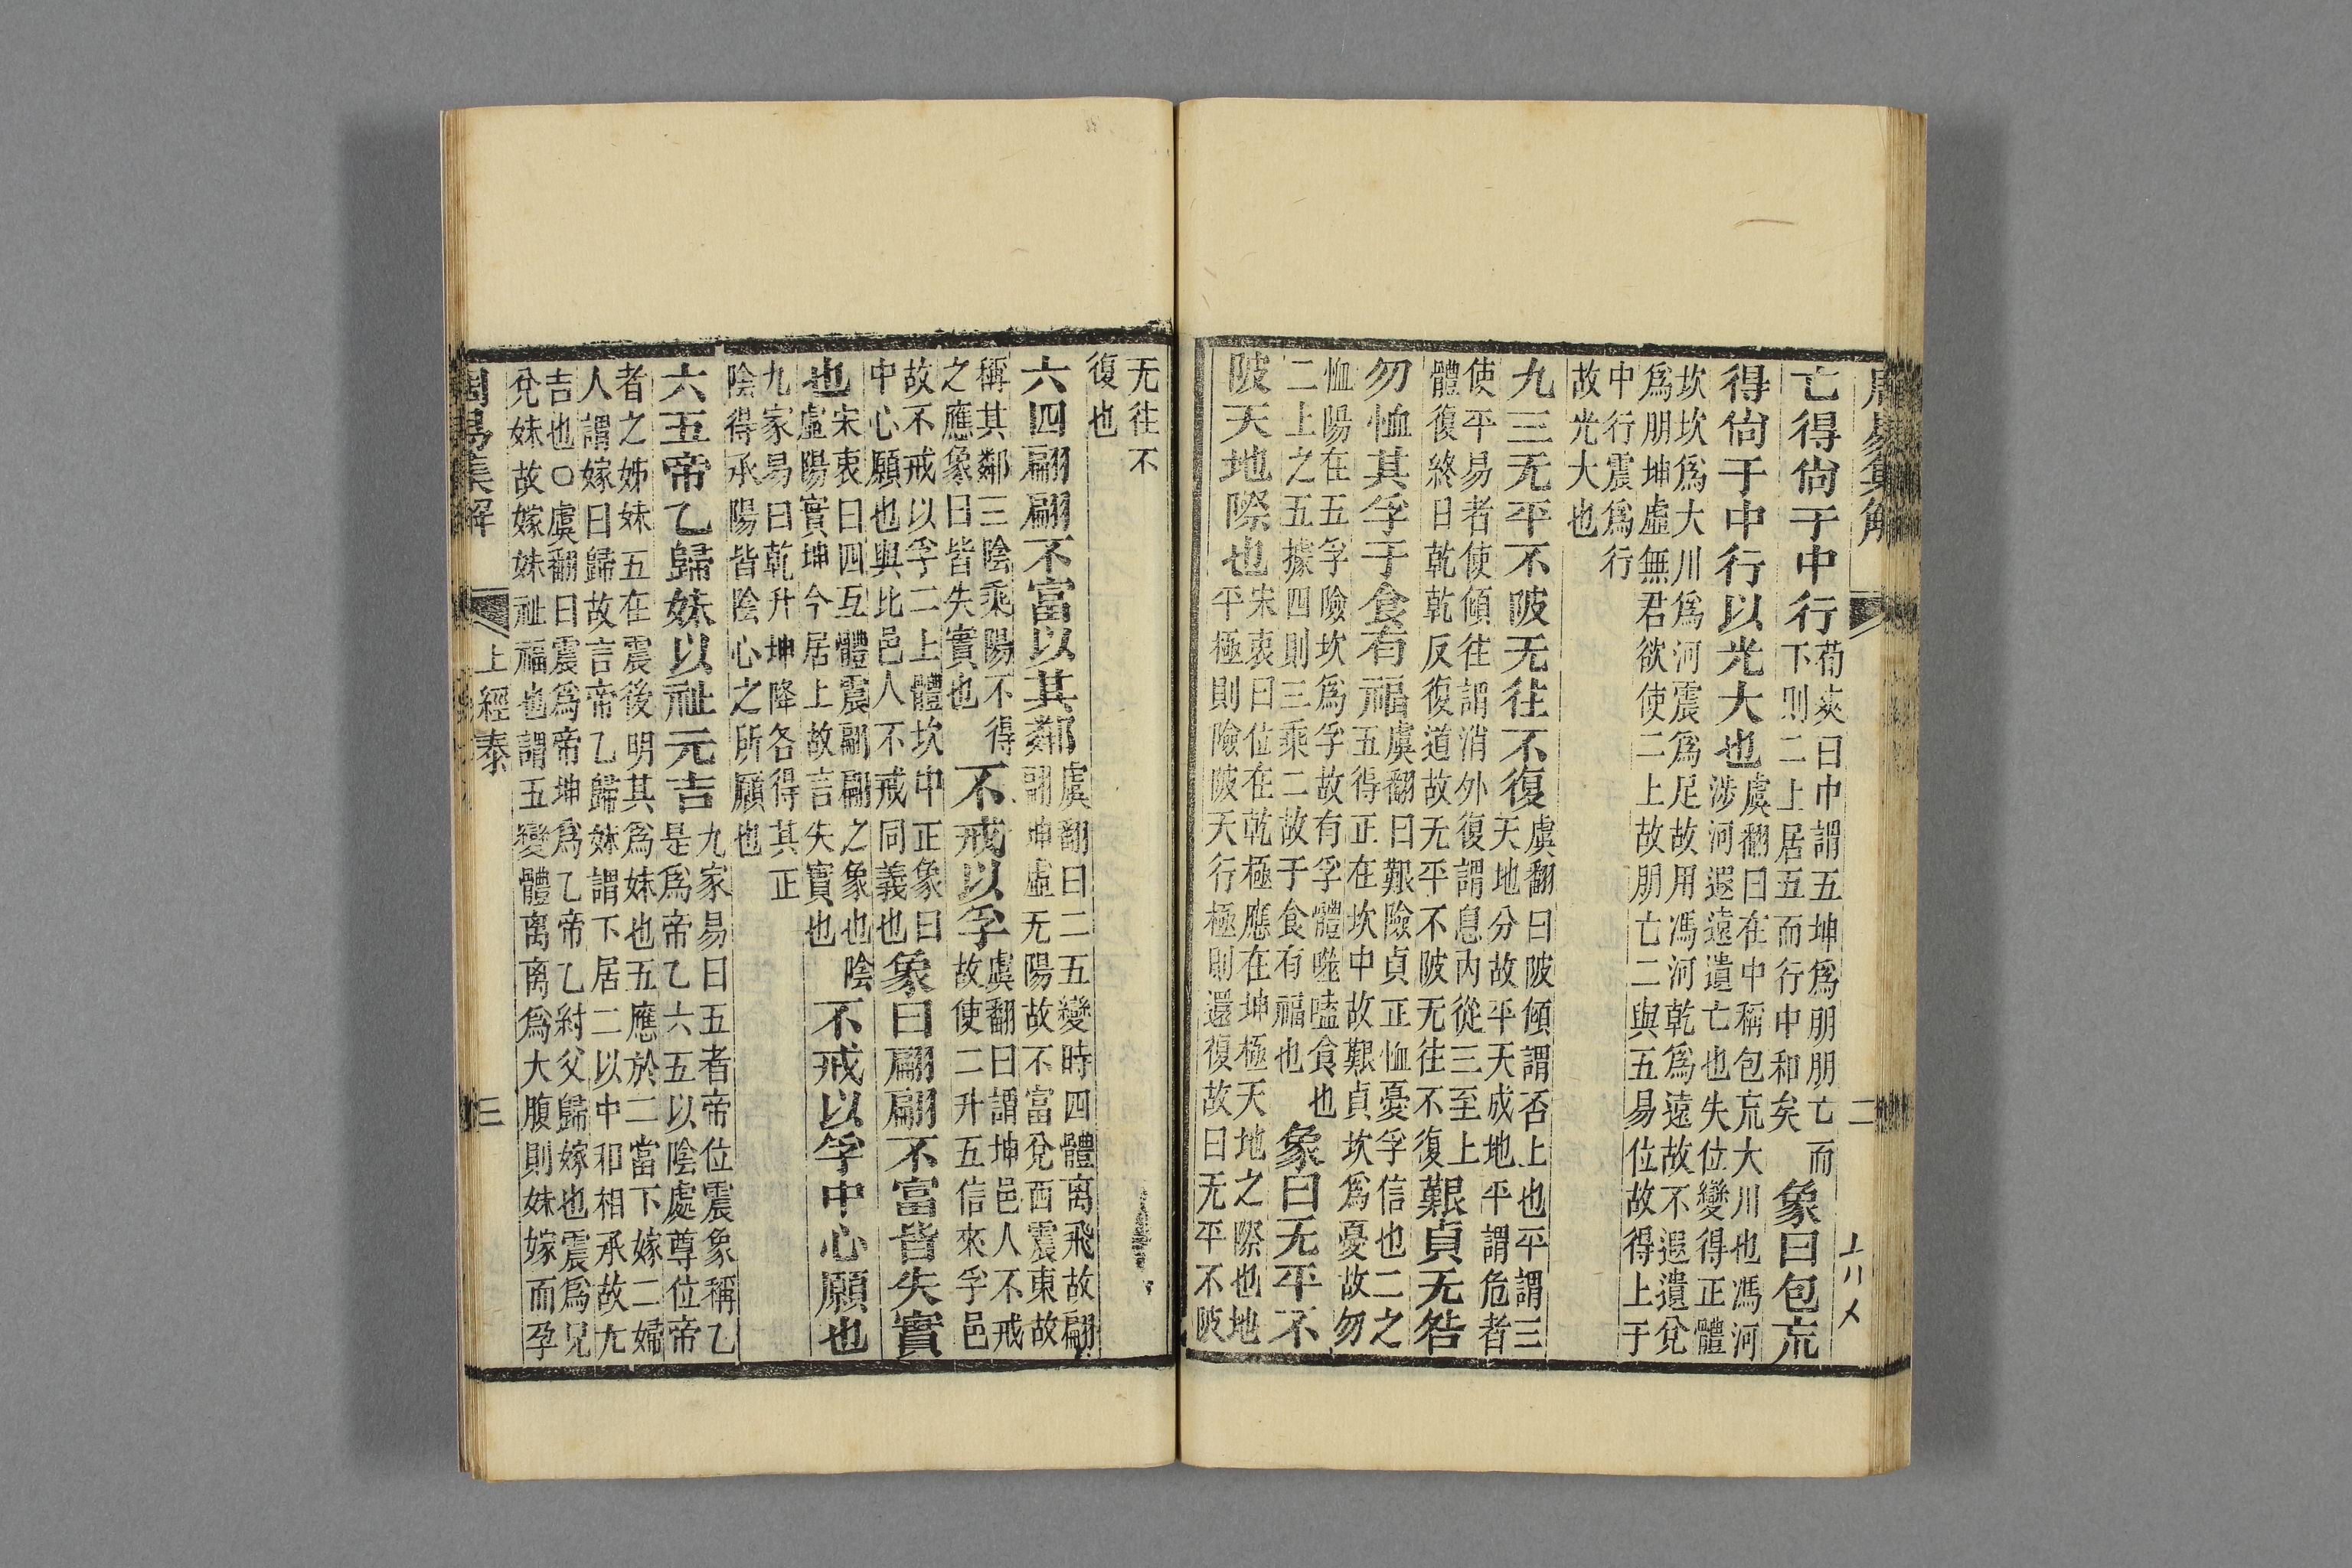 周易集解 二
亡得尚于中行荀爽曰中謂五坤爲朋朋亡而
下則二上居五而行中和矣象曰包㐬
得尚于中行以光大也虞翻曰在中稱包㐬大川也馮河
涉河遐遠遺亡也失位變得正體
坎坎爲大川爲河震爲足故用馮河乾爲遠故不遐遺兌
爲朋坤虛無君欲使二上故朋亡二與五易位故得上于
中行震爲行
故光大也
九三无平不陂无往不復虞翻曰陂傾謂否上也平謂三
天地分故平天成地平謂危者
使平易者使傾往謂消外復謂息內從三至上
體復終日乾乾反復道故无平不陂无往不復艱貞无咎
勿恤其孚于食有福虞翻曰艱險貞正恤憂孚信也二之
五得正在坎中故艱貞坎爲憂故勿
恤陽在五孚險坎爲孚故有孚體噬嗑食也
二上之五據四則三乘二故于食有福也象曰无平不
陂天地際也宋衷曰位在乾極應在坤極天地之際也地
平極則險陂天行極則還復故曰无平不陂
无往不
復也
六四翩翩不富以其鄰虞翻曰二五變時四體离飛故翩
翩坤虛无陽故不富兌西震東故
稱其鄰三陰乘陽不得
之應象曰皆失實也不戒以孚虞翻曰謂坤邑人不戒
故使二升五信來孚邑
故不戒以孚二上體坎中正象曰
中心願也與比邑人不戒同義也象曰翩翩不富皆失實
也宋衷曰四互體震翩翩之象也陰
虛陽實坤今居上故言失實也不戒以孚中心願也
九家易曰乾升坤降各得其正
陰得承陽皆陰心之所願也
六五帝乙歸妹以祉元吉九家易曰五者帝位震象稱乙
是爲帝乙六五以陰處尊位帝
者之姊妹五在震後明其爲妹也五應於二當下嫁二婦
人謂嫁曰歸故言帝乙歸妹謂下居二以中和相承故元
吉也○虞翻曰震爲帝坤爲乙帝乙紂父歸嫁也震爲兄
兌妹故嫁妹祉福也謂五變體离离爲大腹則妹嫁而孕
周易集解 上經 泰 三